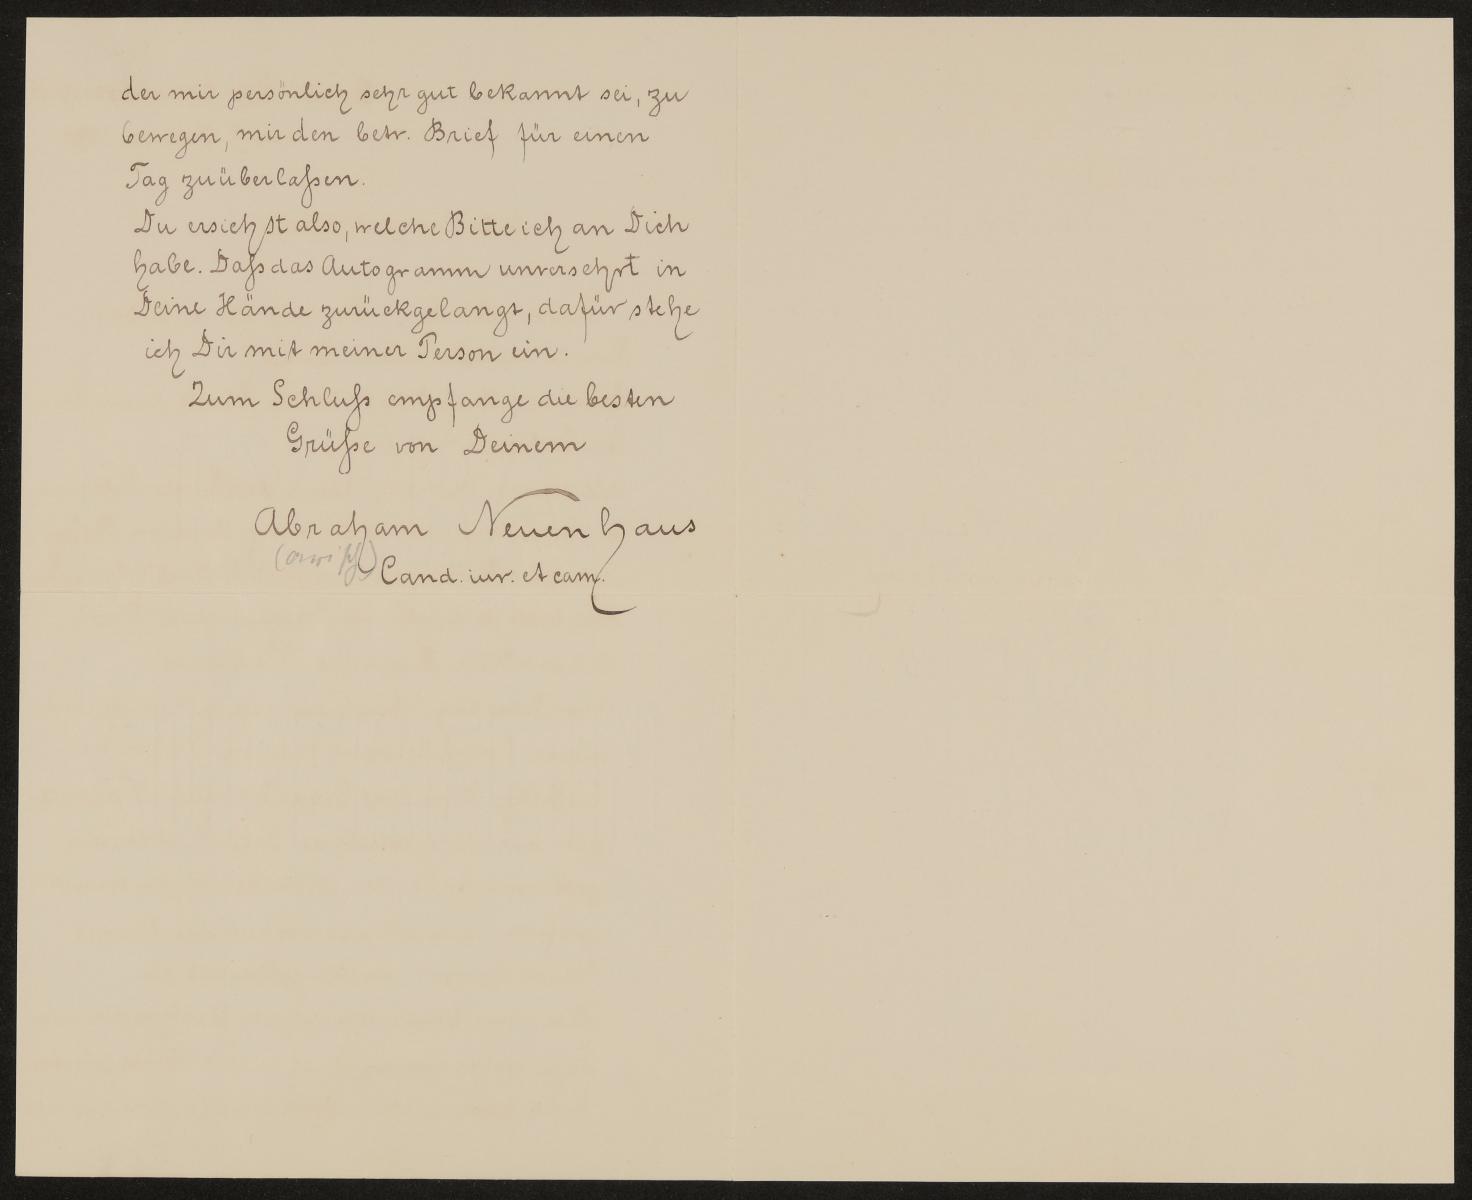 der mir persönlich sehr gut bekannt sei, zu
bewegen, mir den betr. Brief für einen
Tag zu überlaßen.
Du ersiehst also, welche Bitte ich an Dich
habe. Daß das Autogramm unversehrt in
Deine Hände zurückgelangt, dafür stehe
ich Dir mit meiner Person ein.
Zum Schluß empfange die besten
Grüße von Deinem
Abraham Neuenhaus
Cand. iur. et cam.